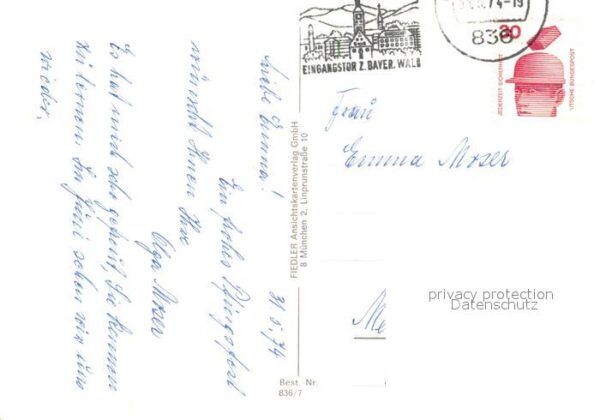 Liebe Emma!
31.5.74
Ein frohes Pfingstfest
wünscht Ihnen Ihre
Olga Moser
Es hat mich sehr gefreut, Sie kennen
zu lernen. Im Juni sehen wir uns
wieder.
FIEDLER Ansichtskartenverlag GmbH
8 München 2, Linprunstraße 10
Best. Nr.
836/7
EINGANGSTOR Z. BAYER. WALD
74-19
836
30
JEDERZEIT SICHERHEIT
DEUTSCHE BUNDESPOST
Frau
Emma Moser
privacy protection
Datenschutz